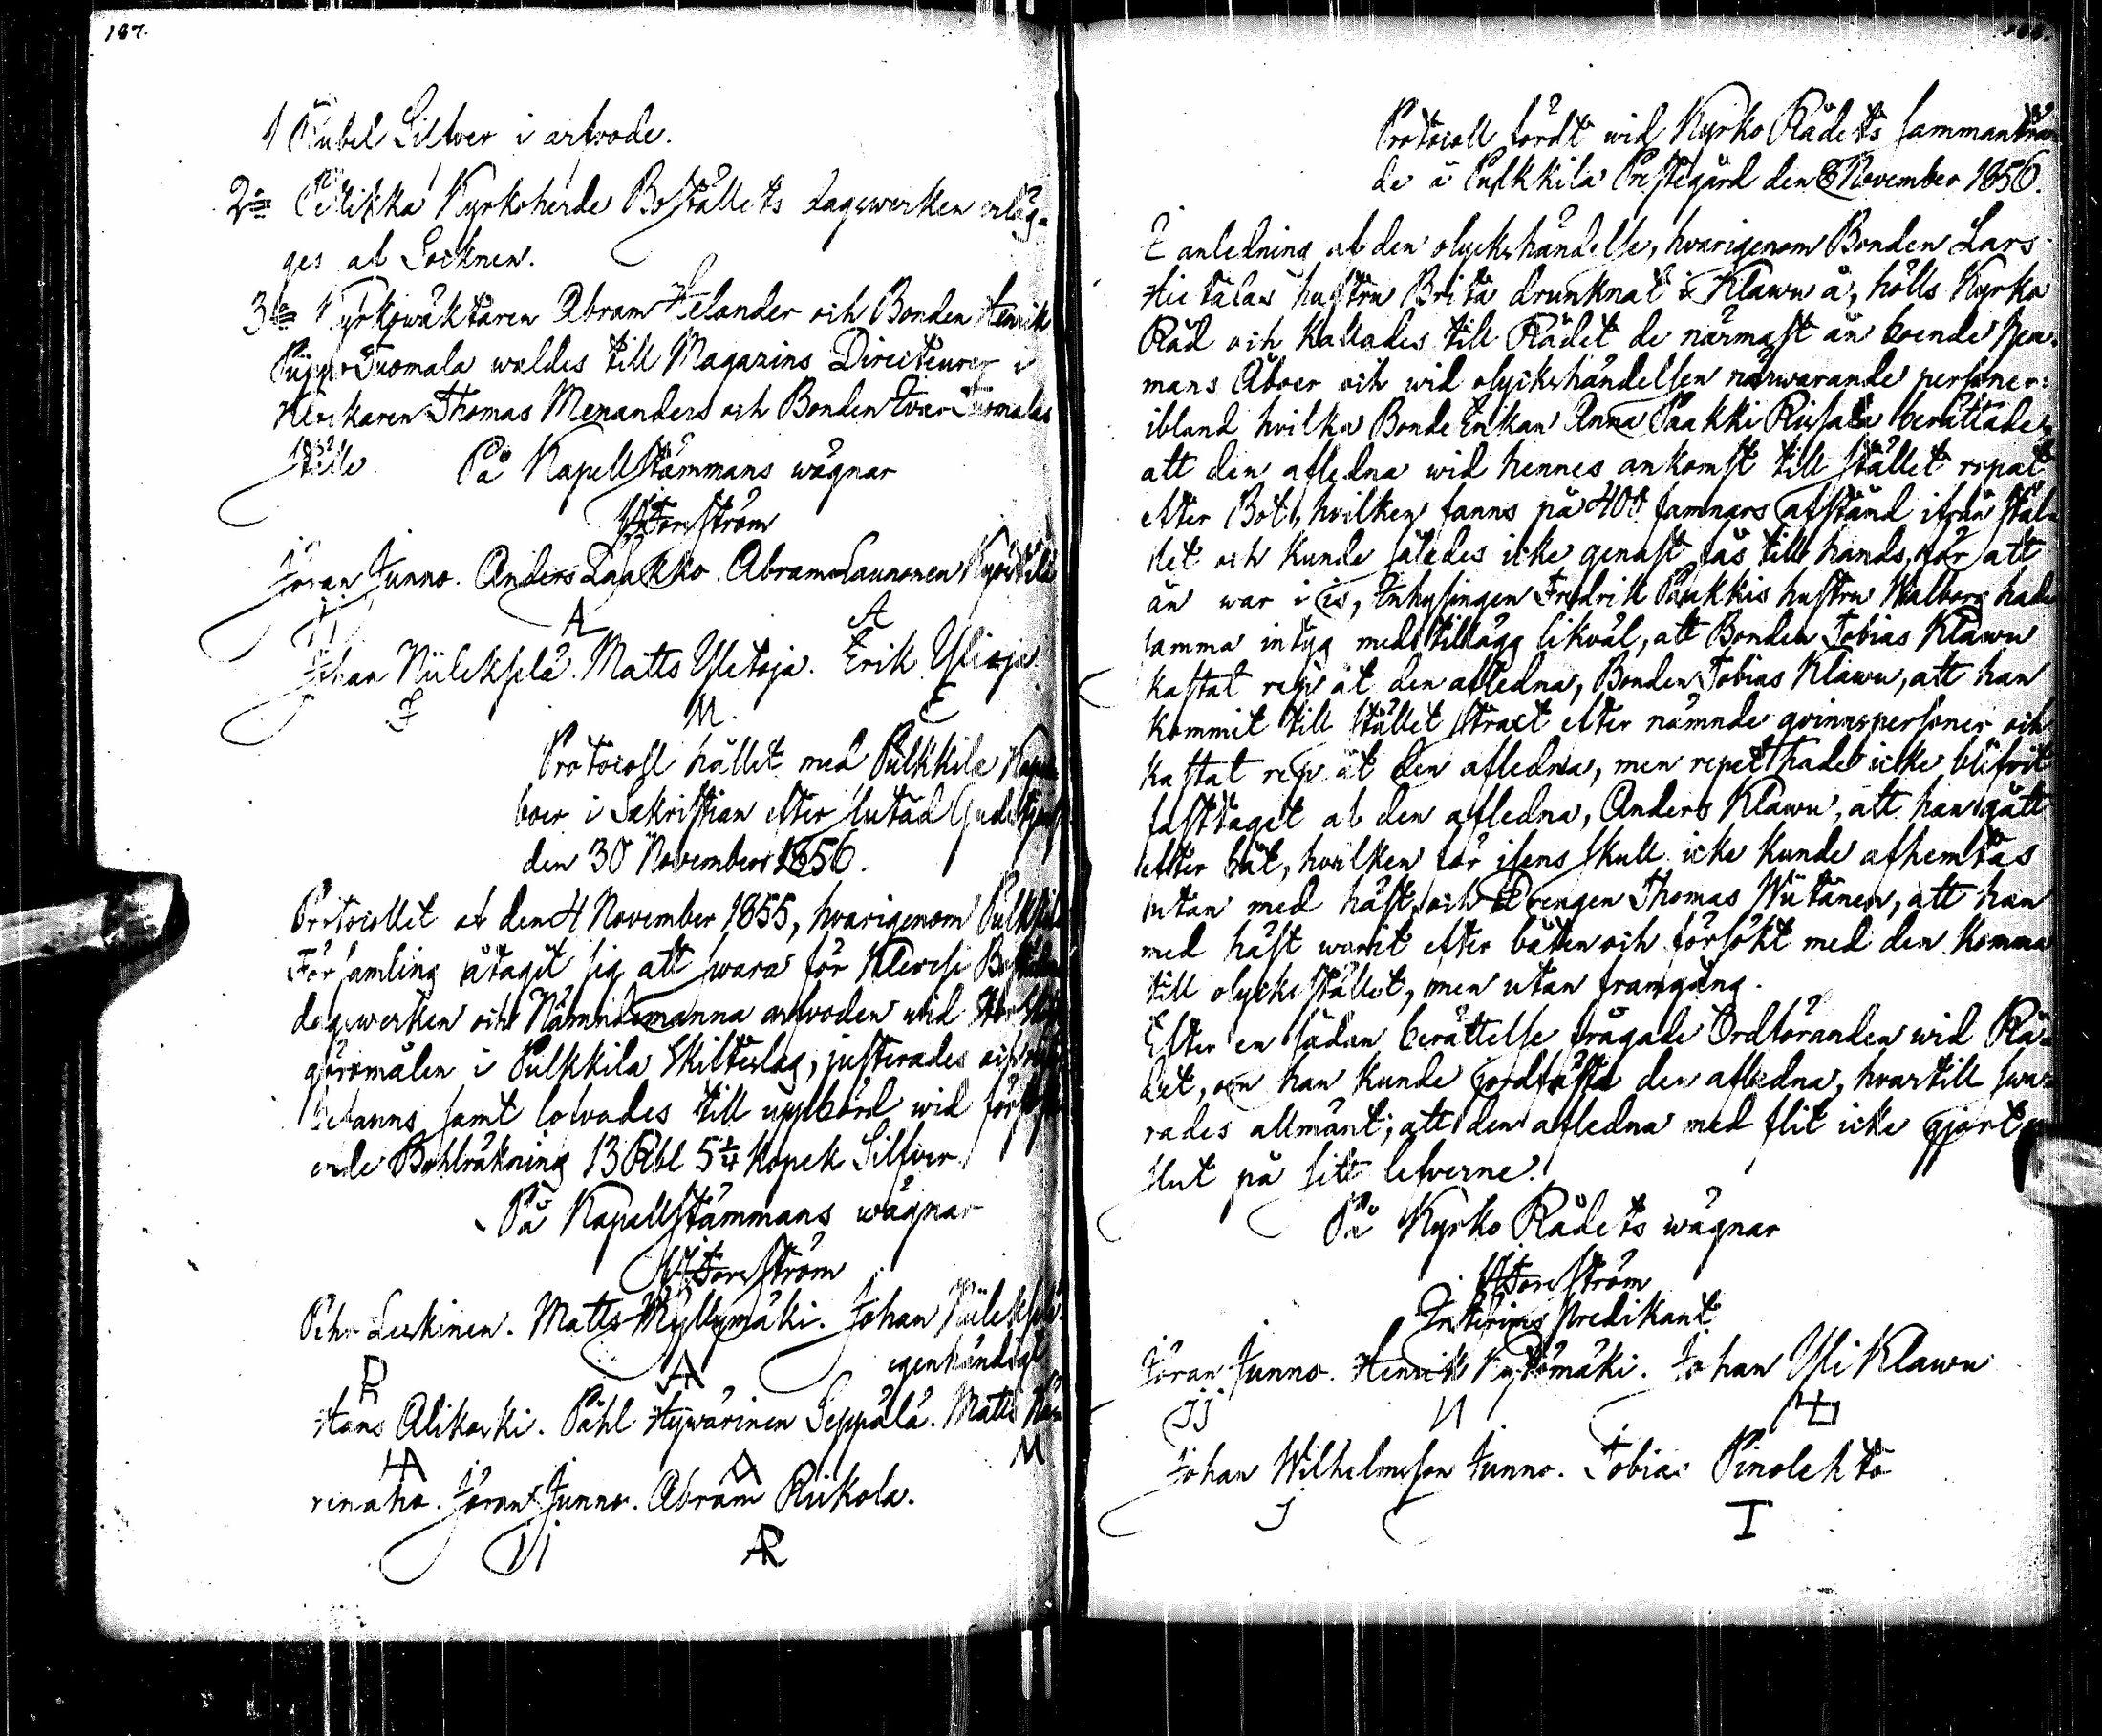 187.
1 Rubel Silfver i arfvode.
2:o Kyrkoherde Boställets dagswerken erläg-
ges af Socknen.
3:o Kyrkowäktaren Abram Helander och Bonden Henrik
Tuomala waldes till Magazins Directeurer i
Klockaren Thomas Menanders och Bonden Ivar Tuomalas
ställe. På Kapellstämmans wägnar
Forsström
Jöran Junno. Anders Laakko. Abram Launonen Kyöstilä
JJ A A
Johan Niilekselä. Matts Ylitoja. Erik Ylioja
J M. E
Protocoll hållet med Pulkkila
boer i Sakristian efter slutad
den 30 November 1856.
Protocollet af den 4 November 1855, hvarigenom Pulkkila
Församling åtagit sig att swara för Klereci
dagswerken och Nämndemanna arfvoden wid
göromålen i Pulkkila Skifteslag, justerades och
befanns samt lofvades till uppbörd wid
ende Bohlräkning 13 Rbl 5 1/4 Kopek Silfver
På Kapellstämmans wägnar
Forsström
Pehr Leskinen. Matts Myllymäki. Johan Niileksel
egenhändigt
Hans Alikoski. Påhl Hywärinen Seppälä. Matts
M
rinaho. Jöran Junno. Abram Riikola.
JJ AR
Protocoll fördt wid Kyrko Rådets sammanträ-
de å Pulkkila Prestegård den 8 November 1856.
I anledning af den olyckshändelse, hvarigenom Bonden Lars
Hietalas hustru Brita drunknat i Klawu å, hölls Kyrko
Råd och kallades till Rådet de närmast ån boende hem-
mans Åboer och wid olyckshändelsen närwarande personer:
ibland hvilka Bonde Enkan Anna Paakki Riisala berättade,
att den aflidna wid hennes ankomst till stället ropat
efter Båt, hvilken fanns på 400 famnars afstånd ifrån stäl-
let och kunde således icke genast fås till hands, för att
ån war i is, Inhysingen Fredrik Paukkis hustru Walborg hade
samma intyg med tillägg likväl, att Bonden Tobias Klawu
kastat rep åt den afledna, Bonden Tobias Klawu, att han
kommit till stället straxt efter nämnde qvinnspersoner och
kastat rep åt den afledna, men repet hade icke blifvit
fasttaget af den afledna, Anders Klawu, att han gått
efter båt, hvilken för isens skull icke kunde afhemtas
utan med häst, och Drengen Thomas Wiitanen, att han
med häst warit efter båten och försökt med den komma
till olycksstället, men utan framgång.
Efter en sådan berättelse frågade Ordföranden wid Rå-
det, om han kunde jordfästa den afledna, hvartill swa-
rades allmänt; att den afledna med flit icke gjort
slut på sitt lefverne.
På Kyrko Rådets wägnar
Forsström
Interims Predikant
Jöran Junno. Henrik Kytömäki. Johan Yli Klawu
JJ
Johan Wilhelmsson Junno. Tobias Pinolehto
J I